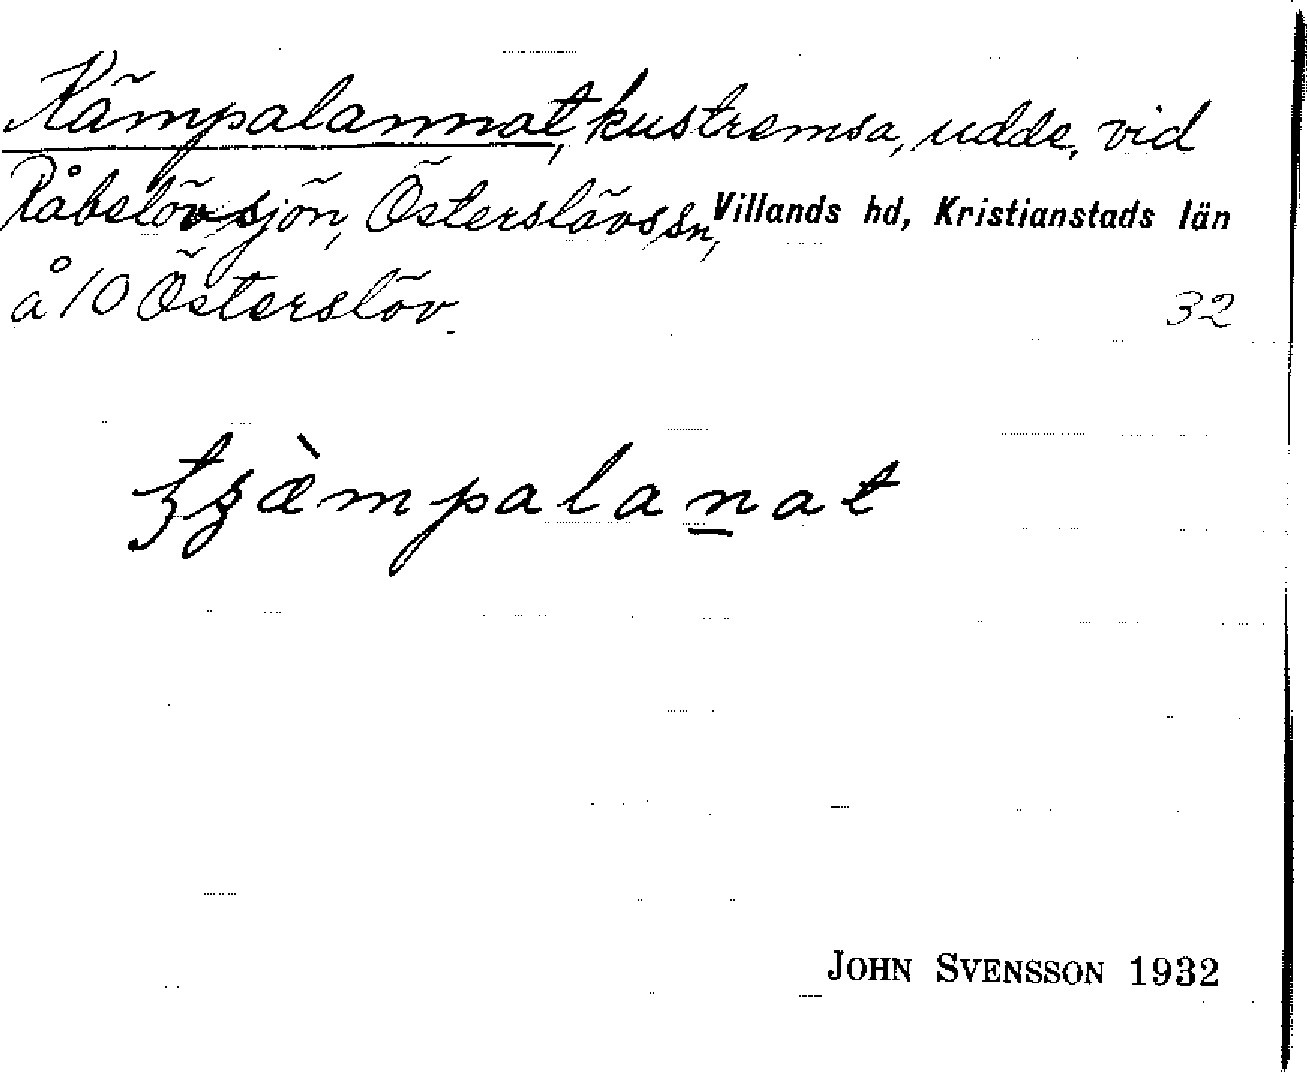 Kämpalannat, kustremsa, udde, vid
Råbelövsjön, Österslövs sn, Villands hd, Kristianstads län
å 10 Österslöv.
32
tʂæ̀mpalaṉat
JOHN SVENSSON 1932